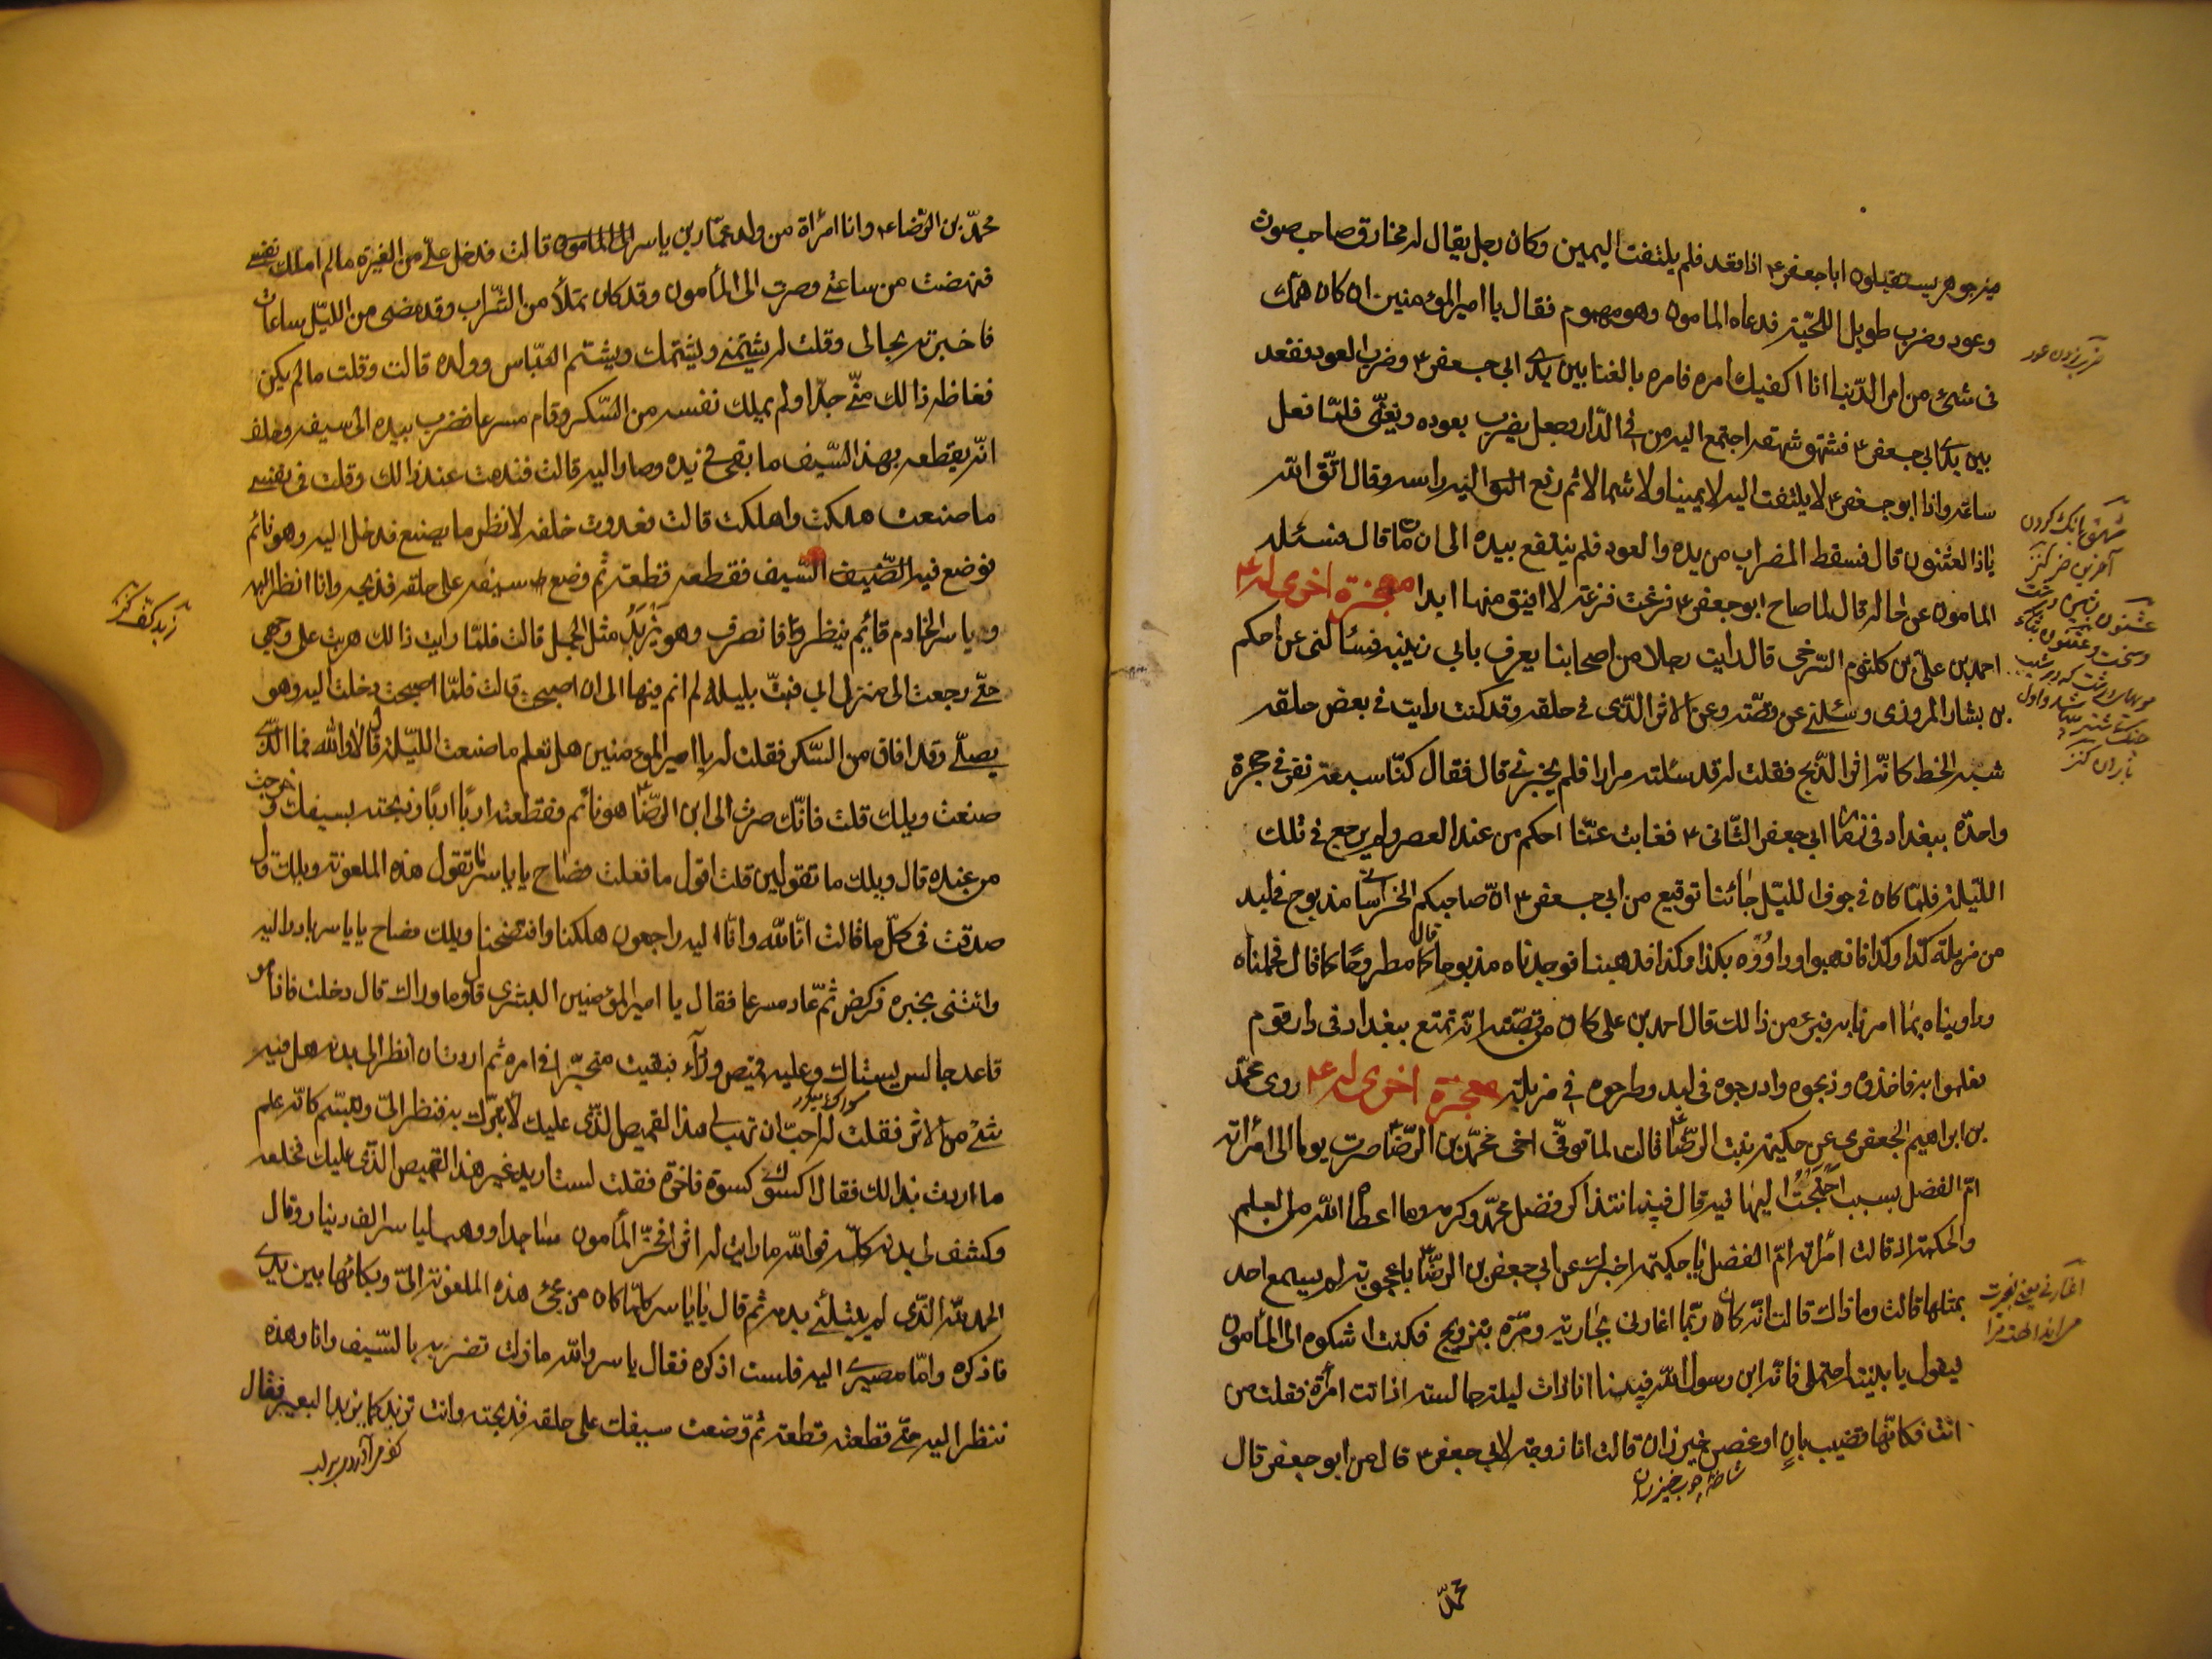 فيه جوهر يستقبلون ابا جعفر ع اذا قعد فلم يلتفت اليهن وكان رجل يقال له مخارق صاحب صوت
وعود وضرب طويل اللحية فدعاه المامون وهو مهموم فقال يا امير المؤمنين ان كان همك
فى شئ من امر الدنيا انا اكفيك امره فامره بالغنا بين يدى ابى جعفر ع وضرب العود فقعد
بين يدى ابى جعفر ع فشهق شهقة اجتمع اليه من فى الدار وجعل يضرب بعوده ويغنى فلما فعل
ساعة واذا ابو جعفر ع لا يلتفت اليه لا يمينا ولا شمالا ثم رفع اليه راسه وقال اتق الله
ياذا العثنون قال فسقط المضراب من يده والعود فلم ينتفع بيده الى ان مات قال فسئله
المامون عن حاله قال لما صاح ابو جعفر ع فزعت فزعة لا افيق منها ابدا معجزة اخرى له ع
احمد بن على بن كلثوم السرخسى قال رايت رجلا من اصحابنا يعرف بابى زينبه فسئالنى عن احكم
بن بشار المروزى وسئلنى عن قصته وعن الاثر الذى فى حلقه وقد كنت رايت فى بعض حلقه
شبه الخط كانه اثر الذبح فقلت له قد سئلته مرارا فلم يخبرنى قال فقال كنا سبعة نفر فى حجرة
واحدة ببغداد فى زمان ابى جعفر الثانى ع فغابت عنا احكم من عند العصر ولم يرجع فى تلك
الليلة فلما كان فى جوف الليل جائنا توقيع من ابى جعفر ع ان صاحبكم الخراسانى مذبوح فى لبد
من مزبلة كذا وكذا فاذهبوا وداووه بكذا وكذا فذهبنا فوجدناه مذبوحا مطروحا كما قال فحملناه
وداويناه بما امرنا به فبرء من ذالك قال احمد بن على كان من قصته انه تمتع ببغداد فى دار قوم
فعلموا به فاخذوه وذبحوه وادرجوه فى لبد وطرحوه فى مزبلة معجزة اخرى له ع روى محمد
بن ابراهيم الجعفرى عن حكيمة بنت الرضا ع قالت لما توفى اخى محمد بن الرضا ع صرت يوما الى امرأته
ام الفضل بسبب احتجت اليها فيه قال فبينا نتذاكر فضل محمد وكرمه وما اعطاه الله من العلم
والحكمة اذ قالت امرأته ام الفضل يا حكيمة اخبرك عن ابى جعفر بن الرضا ع باعجوبة لم يسمع احد
بمثلها قالت وما ذاك قالت انه كان ربما اغارنى بجارية ومرة بتزويج فكنت اشكوه الى المأمون
فيقول يا بنية احتملى فانه ابن رسول الله فبينا انا ذات ليلة جالسة اذا اتت امرأة فقلت من
انت فكانها قضيب بان او غصن خيزران قالت انا زوجة لابى جعفر ع قال من ابو جعفر قال
شاخه چوب خيزران
محمد
شهق بانگ كردن
محمد بن الرضا ع وانا امرأة من ولد عمار بن ياسر قالت فدخل على من الغيرة ما لم املك نفسى
فنهضت من ساعتى وصرت الى المأمون وقد كان تملأ من الشراب وقد مضى من الليل ساعات
فاخبرته بحالى وقلت له يشتمنى ويشتمك ويشتم العباس وولده قالت وقلت ما لم يكن
فغاظه ذالك منى جدا ولم يملك نفسه من السكر وقام مسرعا فضرب بيده الى سيفه وحلف
انه يقطعه بهذا السيف ما بقى فى يده وصار اليه قالت فندمت عند ذالك وقلت فى نفسى
ما صنعت هلكت واهلكت قالت فعدوت خلفه لانظر ما يصنع فدخل اليه وهو نائم
فوضع فيه السيف فقطعه قطعة ثم وضع سيفه على حلقه فذبحه وانا انظر اليه
وياسر الخادم قائم ينظر وانصرف وهو يزبد مثل الجمل قالت فلما رايت ذالك هربت على وجهى
حتى رجعت الى منزل ابى فبت بليلة لم انم فيها الى ان اصبحت قالت فلما اصبحت دخلت اليه وهو
يصلى وقد افاق من السكر فقلت له يا امير المؤمنين هل تعلم ما صنعت الليلة قال لا والله فما الذى
صنعت ويلك قلت فانك صرت الى ابن الرضا ع هو نائم فقطعته اربا اربا وذبحته بسيفك وخرجت
من عنده قال ويلك ما تقولين قلت اقول ما فعلت فصاح يا ياسر ما تقول هذه الملعونة ويلك قال
صدقت فى كل ما قالت انا لله وانا اليه راجعون هلكنا وافتضحنا ويلك فصاح يا ياسر بادر اليه
وائتنى بخبره فركض ثم عاد مسرعا فقال يا امير المؤمنين البشرى قال وما وراك قال دخلت فاذا هو
قاعد جالس يستاك وعليه قميص ودآء فبقيت متحيرا فى امره ثم اردت ان انظر الى بدنه هل فيه
شئ من الاثر فقلت له احب ان تهب لى هذا القميص الذى عليك لاتبرك به فنظر الى وتبسم كانه علم
ما اردت بذالك فقال اكسوك كسوة فاخرة فقلت لست اريد غير هذا القميص الذى عليك فخلعه
وكشف لى بدنه كله فوالله ما رايت له اثرا فخر المأمون ساجدا ووهب لياسر الف دينار وقال
الحمد لله الذى لم يبتلنى بدمه ثم قال يا ياسر كلما كان من مجئ هذه الملعونة الى وبكائها بين يدى
فاذكره واما مصيرى اليه فلست اذكره فقال ياسر والله ما زلت تضربه بالسيف وانا وهذه
ننظر اليه حتى قطعته قطعة قطعة ثم وضعت سيفك على حلقه فذبحته وانت تزبد كما يزبد البعير فقال